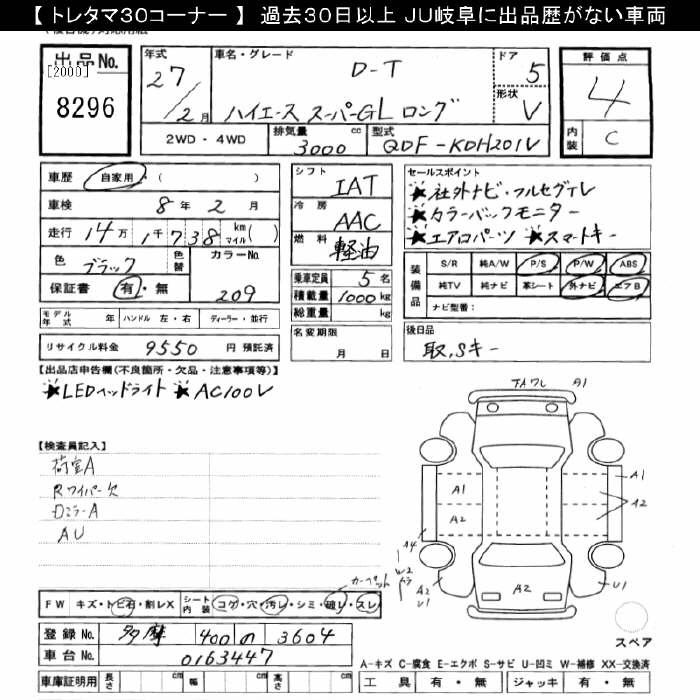 【 トレタマ30コーナー 】 過去30日以上 JU岐阜に出品歴がない車両
出品 No.
[2000]
8296
年式 27 / 2 月
車名・グレード D-T
ハイエース スーパーGL ロング
ドア 5
形状 V
評価点 4
内装 C
2WD・4WD
排気量 3000 cc
型式 QDF-KDH201V
車歴 自家用・( )
車検 8 年 2 月
走行 14 万 1 千 738 km マイル ( )
色 ブラック 色替
カラーNo. 209
保証書 有・無
シフト IAT
冷房 AAC
燃料 軽油
乗車定員 5 名
積載量 1000 kg
総重量 kg
名変期限 月 日
セールスポイント
★社外ナビ・フルセグTV
★カラーバックモニター
★エアロパーツ ★スマートキー
装備品 S/R 純A/W P/S P/W ABS
純TV 純ナビ 革シート 外ナビ エアB
ナビ型番:
モデル年式 年 ハンドル 左・右 ディーラー・並行
リサイクル料金 9550 円 預託済
後日品
取,Sキー
【出品店申告欄(不良箇所・欠品・注意事項等)】
★LEDヘッドライト ★AC100V
【検査員記入】
荷室A
Rワイパー欠
DミラーA
AU
FW キズ・トビ石・割レX
シート内装 コゲ・穴・汚レ・シミ・破レ・スレ
カーペット
登録 No. 多摩 400 の 3604
車台 No. 0163447
車庫証明用 長さ cm 幅 cm 高さ cm
TAワレ A1
A1
A1
A2
A2
A4
W2
A2
U1
A2
U1
スペア
A-キズ C-腐食 E-エクボ S-サビ U-凹ミ W-補修 XX-交換済
工具 有・無 ジャッキ 有・無